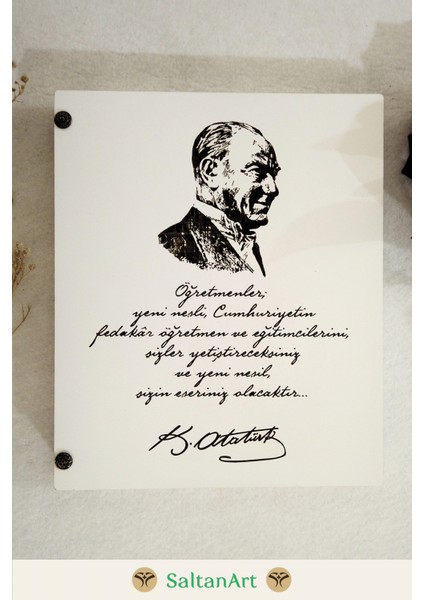 Öğretmenler;
yeni nesli, Cumhuriyetin
fedakâr öğretmen ve eğitimcilerini,
sizler yetiştireceksiniz
ve yeni nesil,
sizin eseriniz olacaktır...
K. Atatürk
SaltanArt